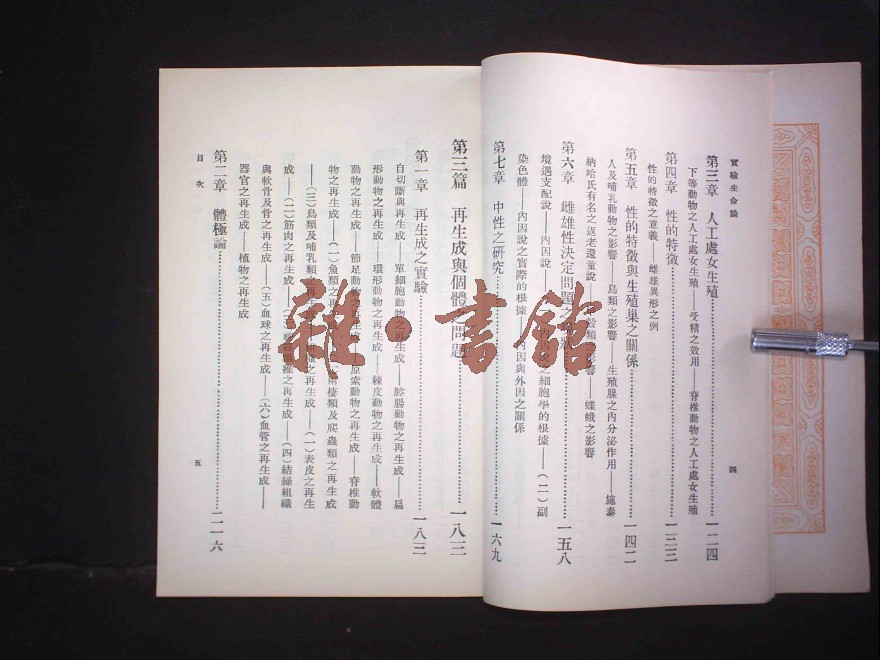 實驗生命論
第三章 人工處女生殖……一二四
下等動物之人工處女生殖——受精之效用——脊椎動物之人工處女生殖
第四章 性的特徵……一三三
性的特徵之意義——雌雄異形之例
第五章 性的特徵與生殖巢之關係……一四二
人及哺乳動物之影響——鳥類之影響——生殖腺之內分泌作用——施泰
納哈氏有名之返老還童說 殼類 影響——蝶蛾之影響
第六章 雌雄性決定問題之 ……一五八
境遇支配說——內因說—— 之細胞學的根據——(二)副
染色體——內因說之實際的根據—— 因與外因之關係
第七章 中性之研究……一六九
四
第三篇 再生成與個體之問題……一八三
第一章 再生成之實驗……一八三
自切斷與再生成——單細胞動物之再生成——腔腸動物之再生成——扁
形動物之再生成——環形動物之再生成——棘皮動物之再生成——軟體
動物之再生成——節足動物之再生成 原索動物之再生成——脊椎動
物之再生成——(一)魚類之再生成 兩棲類及爬蟲類之再生成
——(三)鳥類及哺乳類之再生成 之再生成——(一)表皮之再生
成——(二)筋肉之再生成—— 之再生成——(四)結締組織
與軟骨及骨之再生成——(五)血球之再生成——(六)血管之再生成——
器官之再生成——植物之再生成
第二章 體極論……二一六
目次
五
雜·書館